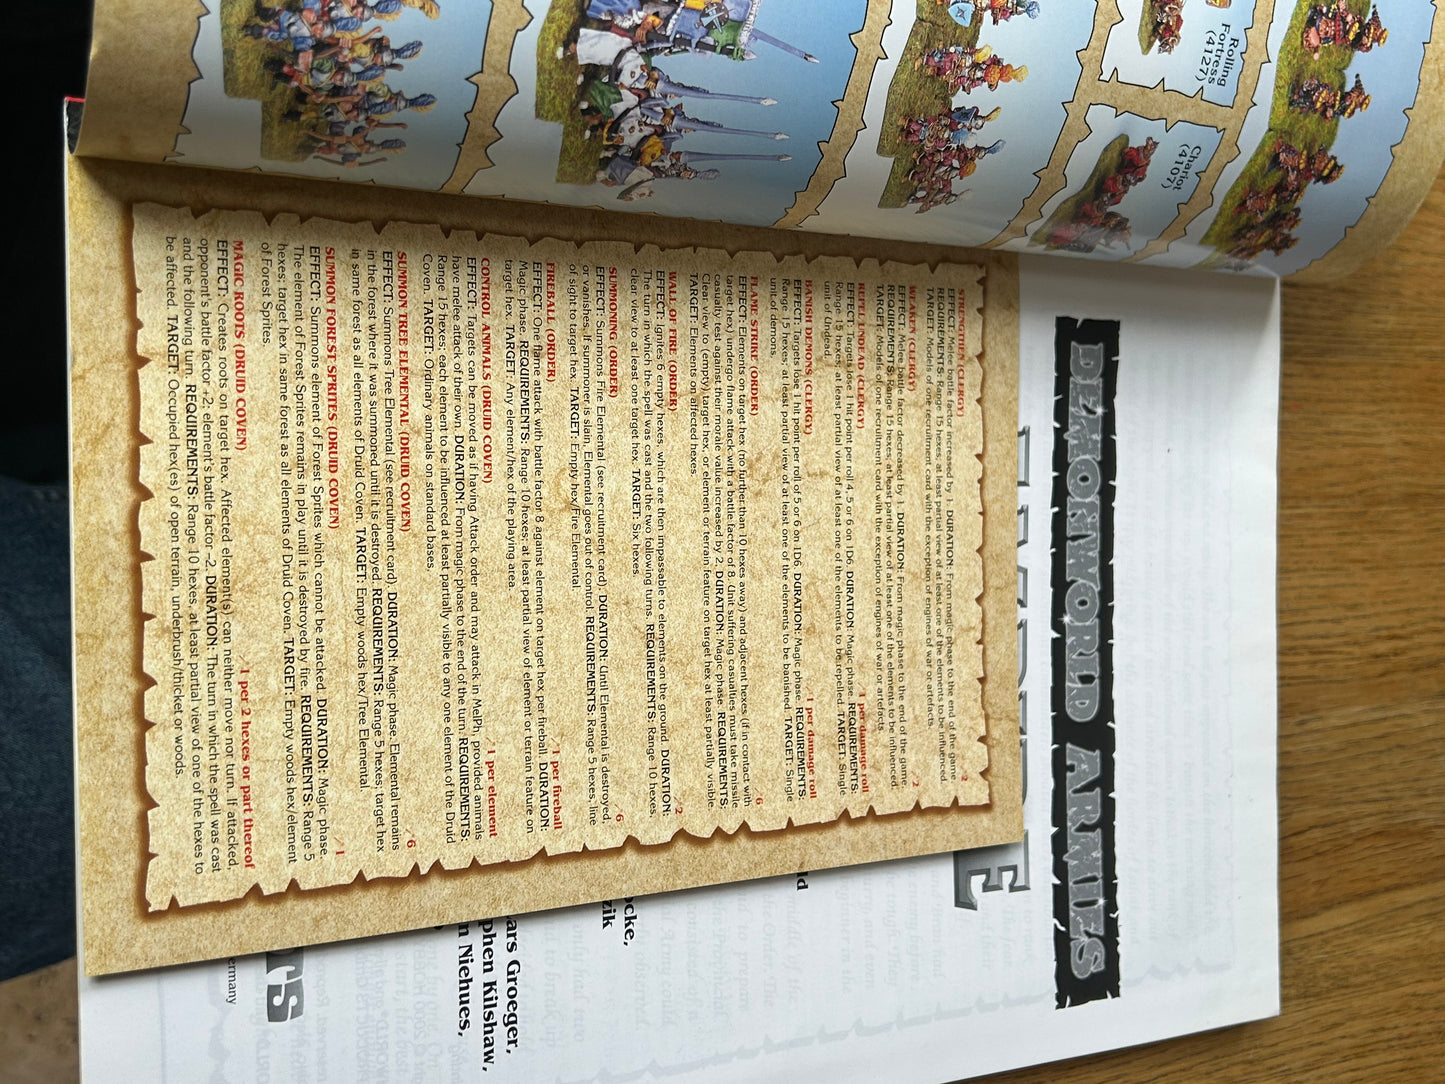 Rolling
Fortress
(4127)
Chariot
(4107)
DEMONWORLD ARMIES
STRENGTHEN (CLERGY) /2
EFFECT: Melee battle factor increased by 1. DURATION: From magic phase to the end of the game.
REQUIREMENTS: Range 15 hexes; at least partial view of at least one of the elements to be influenced.
TARGET: Models of one recruitment card with the exception of engines of war or artefacts.
WEAKEN (CLERGY) /2
EFFECT: Melee battle factor decreased by 1. DURATION: From magic phase to the end of the game.
REQUIREMENTS: Range 15 hexes; at least partial view of at least one of the elements to be influenced.
TARGET: Models of one recruitment card with the exception of engines of war or artefacts.
REPEL UNDEAD (CLERGY) 1 per damage roll
EFFECT: Targets lose 1 hit point per roll 4, 5 or 6 on 1D6. DURATION: Magic phase. REQUIREMENTS:
Range 15 hexes; at least partial view of at least one of the elements to be repelled. TARGET: Single
unit of Undead.
BANISH DEMONS (CLERGY) 1 per damage roll
EFFECT: Targets lose 1 hit point per roll of 5 or 6 on 1D6. DURATION: Magic phase. REQUIREMENTS:
Range 15 hexes; at least partial view of at least one of the elements to be banished. TARGET: Single
unit of demons.
FLAME STRIKE (ORDER) /6
EFFECT: Elements on target hex (no further than 10 hexes away) and adjacent hexes (if in contact with
target hex) undergo flame attack with a battle factor of 8. Unit suffering casualties must take missile
casualty test against their morale value increased by 2. DURATION: Magic phase. REQUIREMENTS:
Clear view to (empty) target hex, or element or terrain feature on target hex at least partially visible.
TARGET: Elements on affected hexes.
WALL OF FIRE (ORDER) /2
EFFECT: Ignites 6 empty hexes, which are then impassable to elements on the ground. DURATION:
The turn in which the spell was cast and the two following turns. REQUIREMENTS: Range 10 hexes;
clear view to at least one target hex. TARGET: Six hexes.
SUMMONING (ORDER) /6
EFFECT: Summons Fire Elemental (see recruitment card). DURATION: Until Elemental is destroyed,
or vanishes. If summoner is slain, Elemental goes out of control. REQUIREMENTS: Range 5 hexes, line
of sight to target hex. TARGET: Empty hex/Fire Elemental.
FIREBALL (ORDER) 1 per fireball
EFFECT: One flame attack with battle factor 8 against element on target hex per fireball. DURATION:
Magic phase. REQUIREMENTS: Range 10 hexes; at least partial view of element or terrain feature on
target hex. TARGET: Any element/hex of the playing area.
CONTROL ANIMALS (DRUID COVEN) /1 per element
EFFECT: Targets can be moved as if having Attack order and may attack in MelPh, provided animals
have melee attack of their own. DURATION: From magic phase to the end of the turn. REQUIREMENTS:
Range 15 hexes; each element to be influenced at least partially visible to any one element of the Druid
Coven. TARGET: Ordinary animals on standard bases.
SUMMON TREE ELEMENTAL (DRUID COVEN) /6
EFFECT: Summons Tree Elemental (see recruitment card). DURATION: Magic phase. Elemental remains
in the forest where it was summoned until it is destroyed. REQUIREMENTS: Range 5 hexes; target hex
in same forest as all elements of Druid Coven. TARGET: Empty woods hex/Tree Elemental.
SUMMON FOREST SPRITES (DRUID COVEN) /1
EFFECT: Summons element of Forest Sprites which cannot be attacked. DURATION: Magic phase.
The element of Forest Sprites remains in play until it is destroyed by fire. REQUIREMENTS: Range 5
hexes; target hex in same forest as all elements of Druid Coven. TARGET: Empty woods hex/element
of Forest Sprites.
MAGIC ROOTS (DRUID COVEN) 1 per 2 hexes or part thereof
EFFECT: Creates roots on target hex. Affected element(s) can neither move nor turn. If attacked,
opponent's battle factor +2; element's battle factor -2. DURATION: The turn in which the spell was cast
and the following turn. REQUIREMENTS: Range 10 hexes, at least partial view of one of the hexes to
be affected. TARGET: Occupied hex(es) of open terrain, underbrush/thicket or woods.
E
ld
ocke,
zik
ars Groeger,
phen Kilshaw,
n Niehues,
TS
ermany